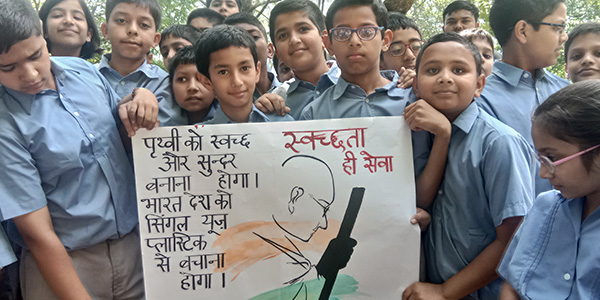 पृथ्वी को स्वच्छ
और सुन्दर
बनाना होगा।
भारत देश को
सिंगल यूज़
प्लास्टिक
से बचाना
होगा।
स्वच्छता
ही सेवा